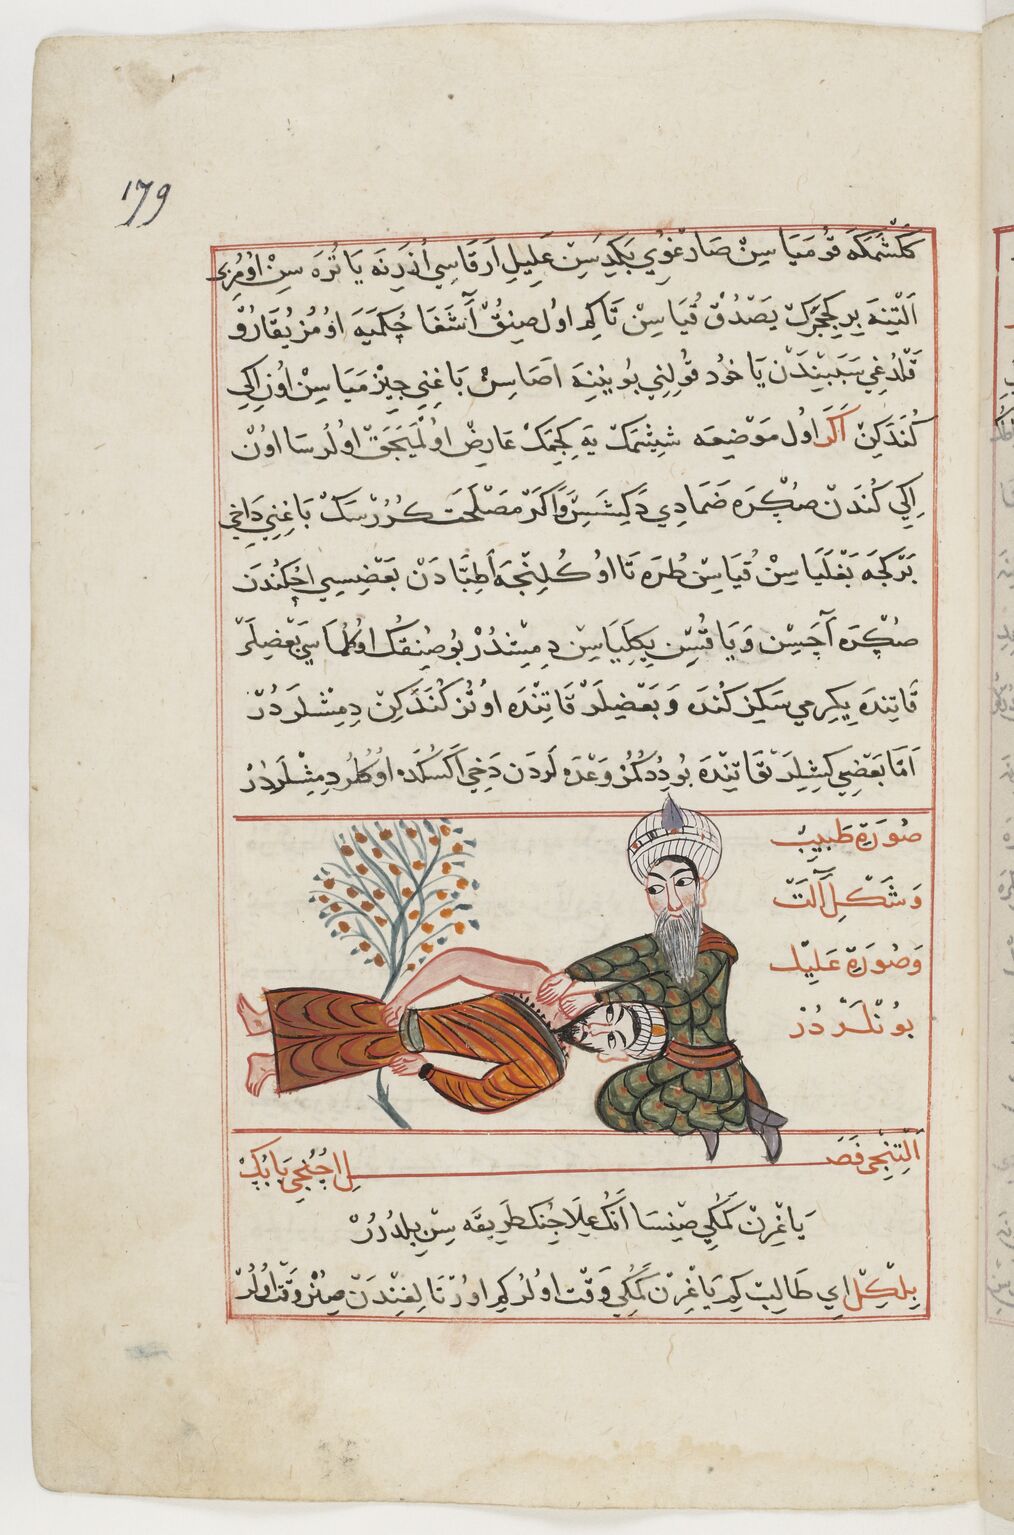 179
كلشمكه قومياسن صارغوي بكدسن عليل ارقاسي اوزرنه ياتره سن اومزي
التنه بر كججك يصدق قياسن تاكم اول صنق آشغا چكميه اومز يقارو
قلدغي سببندن يا خود قولني بوينه اصاسن باغني چزمياسن اون ايكي
كندكن اكر اول موضعه ششمك يه كجمك عارض اولميجق اولرسا اون
ايكي كندن صكره ضمادي دكشسن و اكر مصلحت كررسك باغني داخي
بركجه بغلياسن قياسن طره تا اوكلنجه اطبادن بعضيسي اچ كندن
صكره آچسن و ياقسن يكلياسن دمشدر بو صنقك اوكلماسي بعضلر
قاتنده يكرمي سكيز كنده و بعضيلر قاتنده اوتز كندكن دمشلردر
اما بعضي كشيلر قاتنده بو ددكمز وعده لردن دخي اكسكده اوكلر دمشلردر
صورة طبيب
و شكل آلت
و صورة عليل
بونلردر
التنجي فصل اچنجي بابك
ياغرن كمكي صنسا انك علاجنك طريقه سن بلدرر
بلكل اي طالب كم ياغرن كمكي وقت اولر كم اورتالغندن صنر وقت اولر